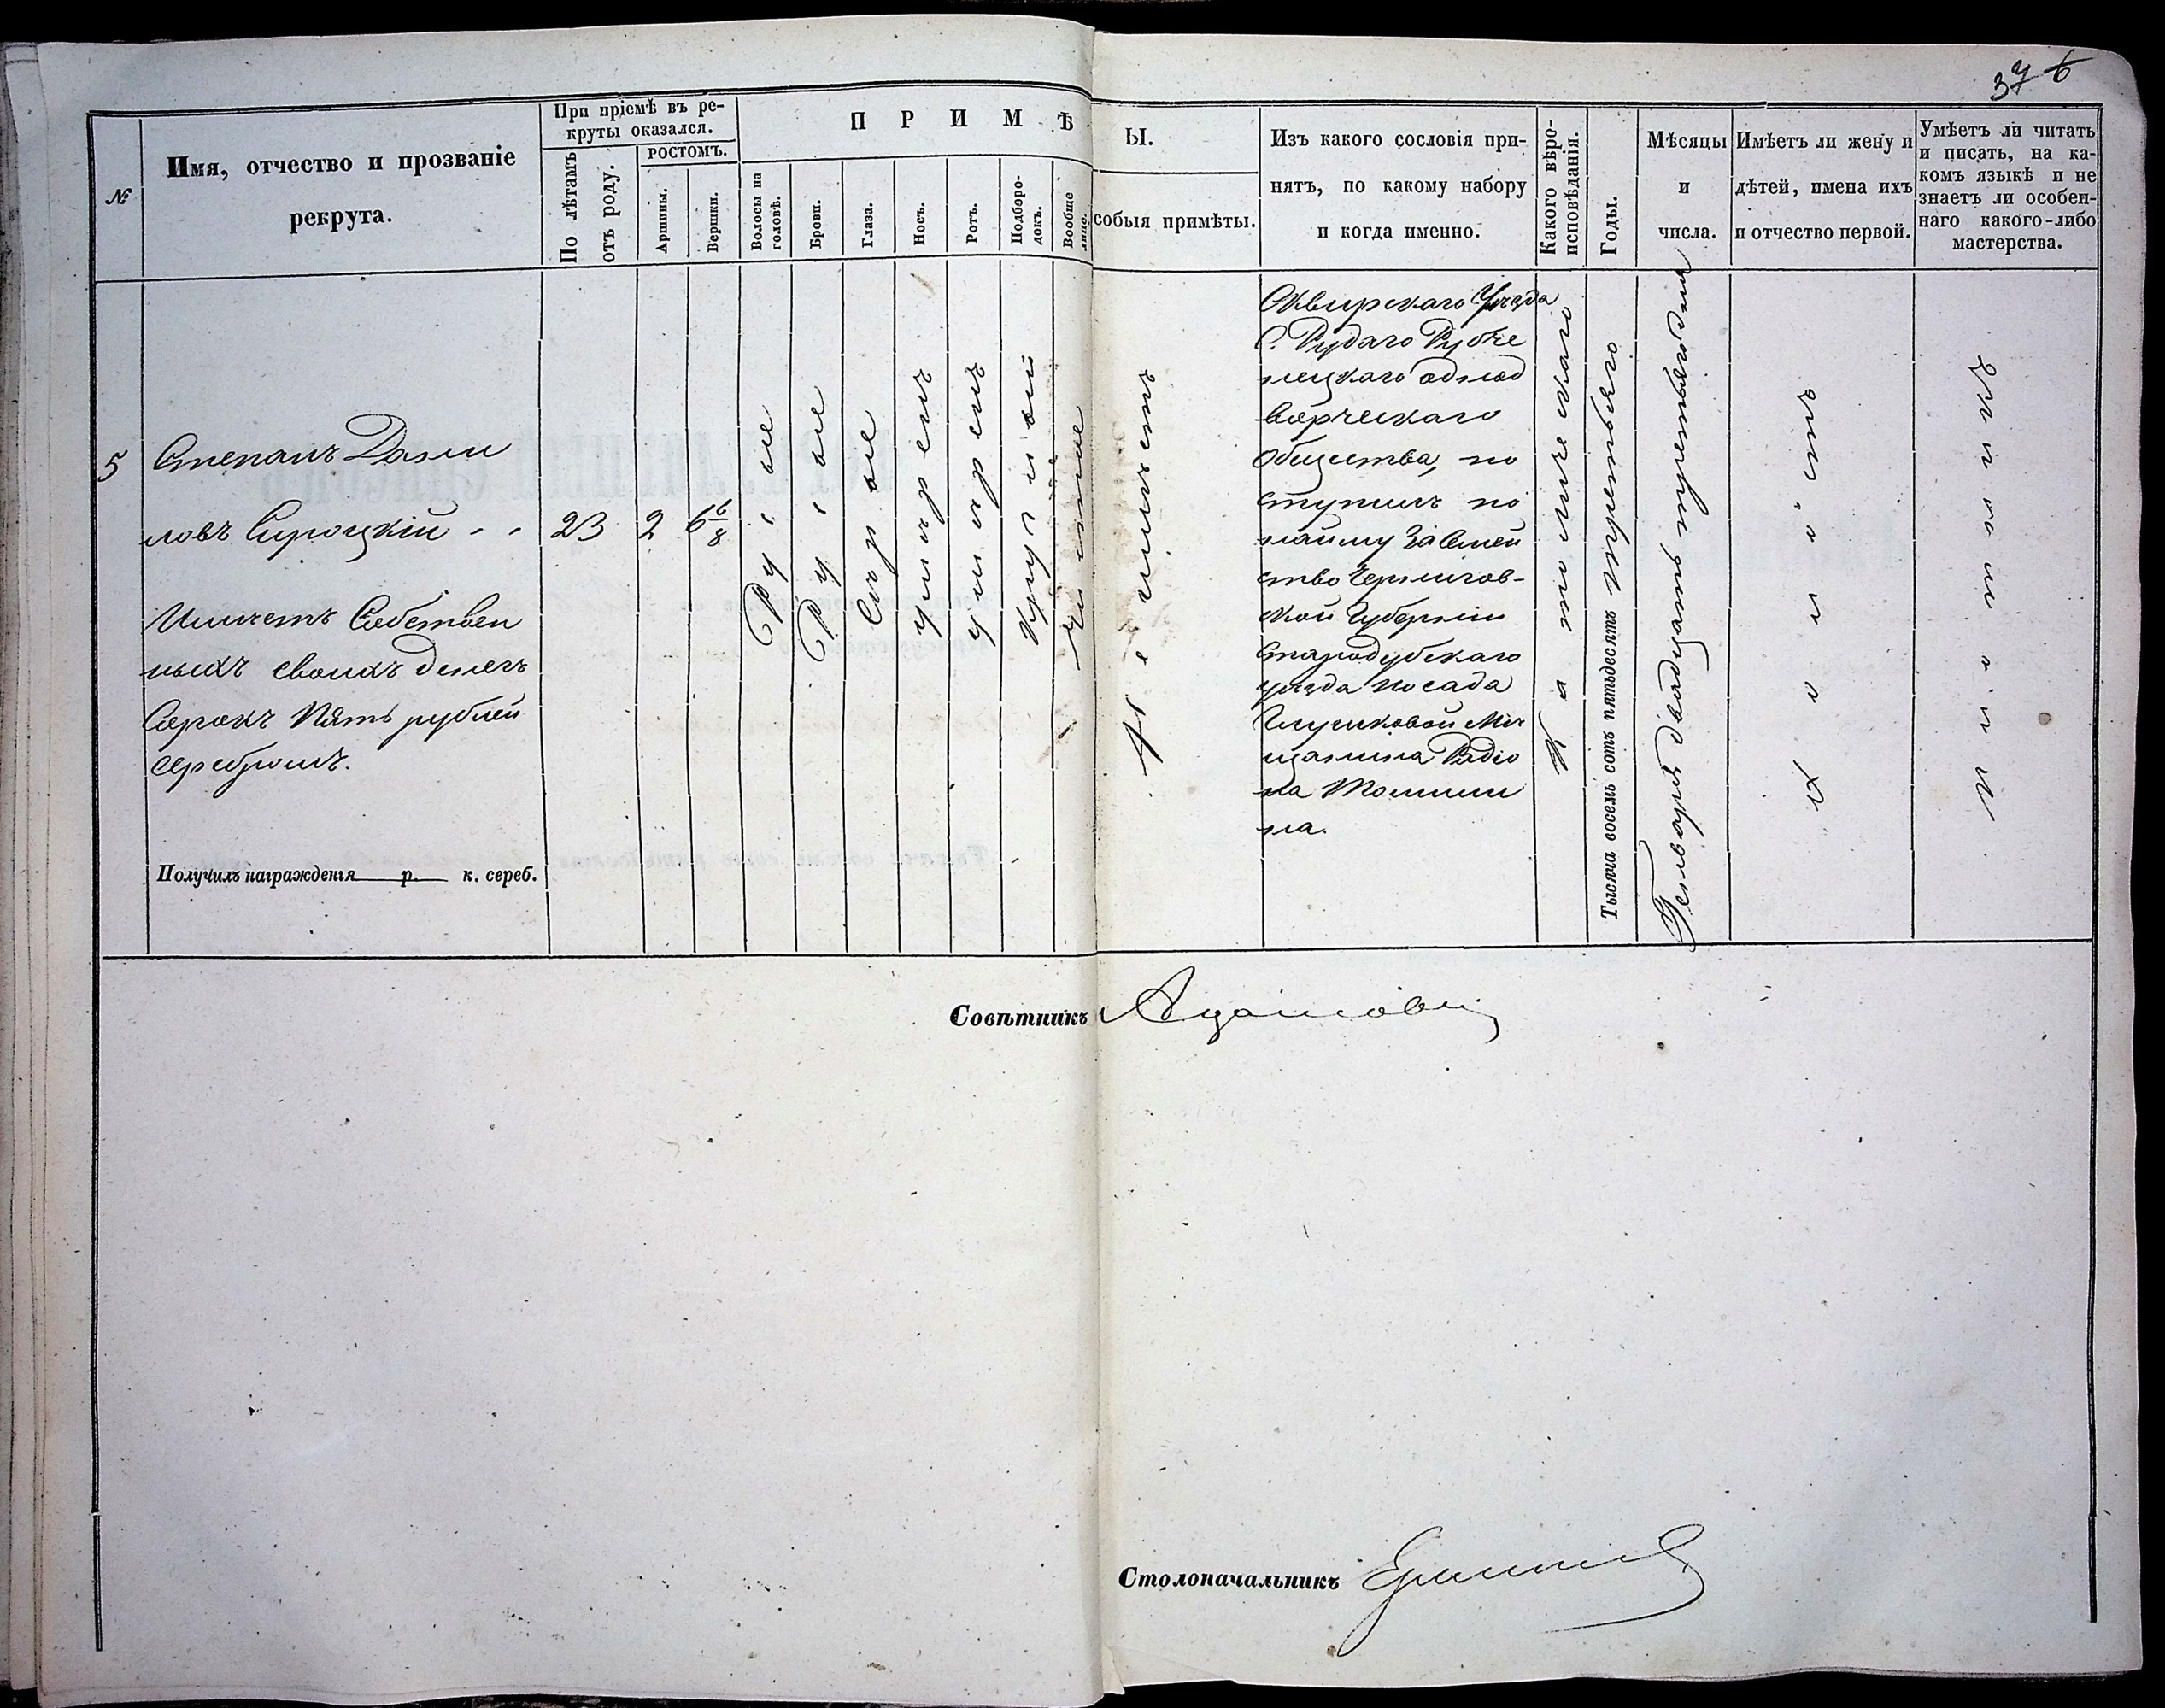 37 6
№
Имя, отчество и прозваніе
рекрута.
При пріемѣ въ ре-
круты оказался.
По лѣтамъ
отъ роду.
РОСТОМЪ.
Аршины.
Вершки.
ПРИМѢ
Волосы на
головѣ.
Брови.
Глаза.
Носъ.
Ротъ.
Подборо-
докъ.
Вообще
лице.
Ы.
собыя примѣты.
Изъ какого сословія при-
нятъ, по какому набору
и когда именно.
Какого вѣро-
исповѣданія.
Годы.
Мѣсяцы
и
числа.
Имѣетъ ли жену и
дѣтей, имена ихъ
и отчество первой.
Умѣетъ ли читать
и писать, на ка-
комъ языкѣ и не
знаетъ ли особен-
наго какого-либо
мастерства.
5
Степанъ Дани
ловъ Сироцкій
Имѣетъ Собствен
ныхъ своихъ денегъ
Сорокъ Пять рублей
серебромъ.
Получилъ награжденія р. к. сереб.
23
2
6 6/8
Русые
Русые
Сѣрые
умѣренъ
умѣренъ
круглый
чистое
Не имѣетъ
Сквирскаго Уѣзда
С. Рудаго
однод
ворческаго
Общества, по
ступилъ по
найму за Семей
ство Чернигов-
ской Губерніи
Стародубскаго
уѣзда посада
Мѣ
щанина Радіо
на
на.
Католическаго
Тысяча восемь сотъ пятьдесятъ третьяго
Генваря двадцать третьяго дня
Холостъ
Совѣтникъ
Столоначальникъ